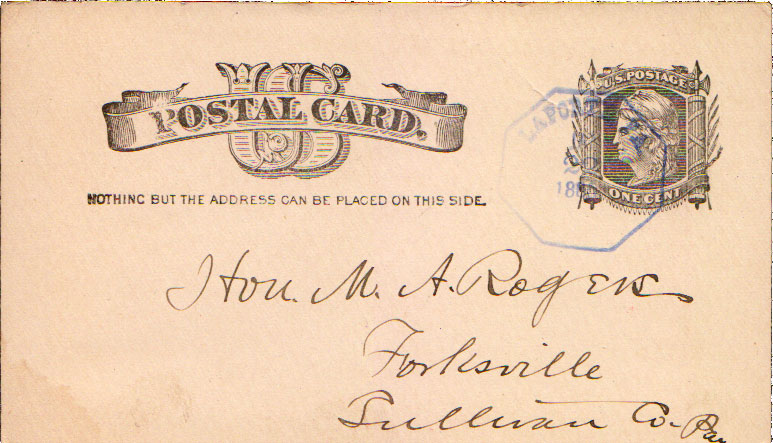 US
POSTAL CARD.
NOTHING BUT THE ADDRESS CAN BE PLACED ON THIS SIDE.
U.S. POSTAGE
ONE CENT
Hon. M. A. Rogers
Forksville
Sullivan Co. Pa